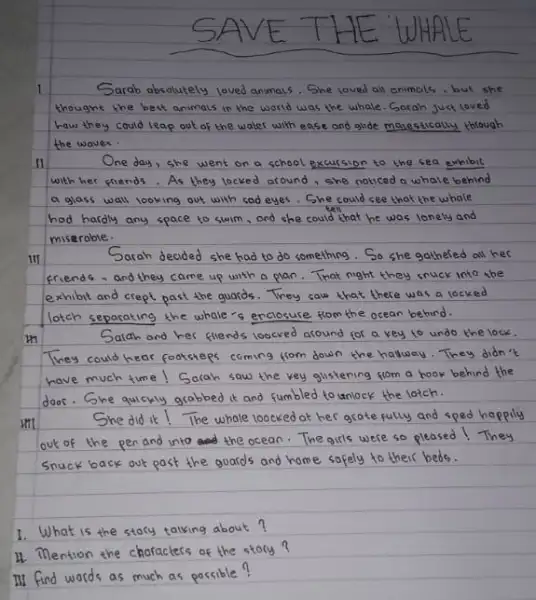 SAVE THE WHALE
I Sarah absolutely loved animals. She loved all animals, but she
thought the best animals in the world was the whale. Sarah just loved
how they could leap out of the water with ease and glide majestically through
the waves.
II One day, she went on a school excursion to the sea exhibit
with her friends. As they locked around, she noticed a whale behind
a glass wall looking out with sad eyes. She could see that the whale
had hardly any space to swim, and she could tell that he was lonely and
miserable.
III Sarah decided she had to do something. So she gathered all her
friends - and they came up with a plan. That night they snuck into the
exhibit and crept past the guards. They saw that there was a locked
latch separating the whale's enclosure from the ocean behind.
IV Sarah and her friends loocked around for a key to undo the lock.
They could hear footsteps coming from down the hallway. They didn't
have much time! Sarah saw the key glistening from a hook behind the
door. She quickly grabbed it and fumbled to unlock the latch.
She did it! The whale loocked at her grate fully and sped happily
out of the pen and into the ocean. The girls were so pleased! They
snuck back out past the guards and home safely to their beds.
I. What is the story talking about?
II. Mention the characters of the story?
III find words as much as possible?